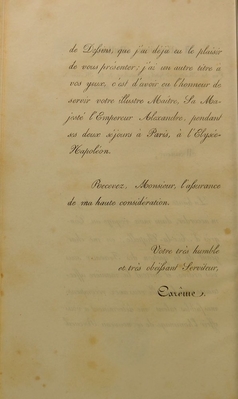 de Dessins, que j'ai déjà eu le plaisir
de vous présenter; j'ai un autre titre à
vos yeux, c'est d'avoir eu l'honneur de
servir votre illustre Maitre, Sa Ma-
jesté l'Empereur Alexandre, pendant
ses deux séjours à Paris, à l'Elysée-
Napoléon.
Recevez, Monsieur, l'assurance
de ma haute considération.
Votre très humble
et très obéissant Serviteur,
Carême.